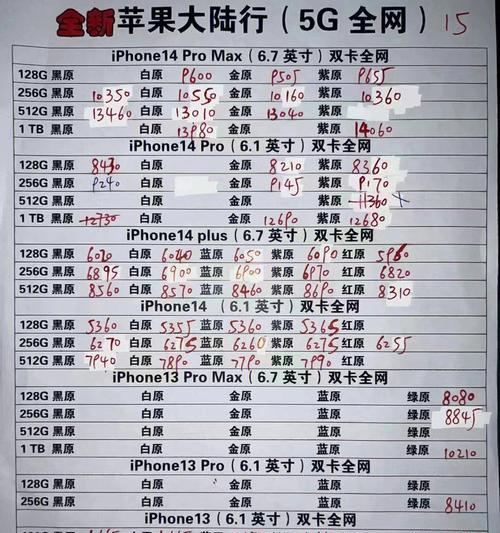 全新苹果大陆行（5G 全网） 15
iPhone14 Pro Max（6.7 英寸）双卡全网
128G 黑原 白原 P600 金原 P505 紫原 P655
256G 黑原 10350 白原 10550 金原 10160 紫原 10360
512G 黑原 13460 白原 13010 金原 13040 紫原
1 TB 黑原 白原 13980 金原 紫原 14060
iPhone14 Pro（6.1 英寸）双卡全网
128G 黑原 8430 白原 金原 8210 紫原 8360
256G 黑原 P240 白原 金原 P145 紫原 P170
512G 黑原 白原 金原 紫原 11360 X
1 TB 黑原 12730 白原 金原 12690 紫原 12680
iPhone14 plus（6.7 英寸）双卡全网
128G 黑原 6020 白原 6040 蓝原 6050 紫原 6090 红原
256G 黑原 6895 白原 6900 蓝原 6900 紫原 6970 红原 6820
512G 黑原 8560 白原 8570 蓝原 8460 紫原 8690 红原 8310
iPhone14 （6.1 英寸）双卡全网
128G 黑原 5360 白原 5355 蓝原 5360 紫原 5365 红原
256G 黑原 6270 白原 6275 蓝原 6260 紫原 6275 红原 6255
512G 黑原 7940 白原 7890 蓝原 7790 紫原 7990 红原
iPhone13 Pro Max（6.7 英寸）双卡全网
128G 黑原 白原 金原 蓝原 绿原 8080
256G 黑原 白原 金原 蓝原 绿原 8845
512G 黑原 白原 金原 蓝原 绿原
1 TB 黑原 白原 金原 蓝原 绿原 10210
iPhone13 Pro（6.1 英寸）双卡全网
128G 黑原 白原 金原 蓝原 绿原
256G 黑原 白原 金原 蓝原 绿原 8410
iPhone13（6.1 英寸）双卡全网